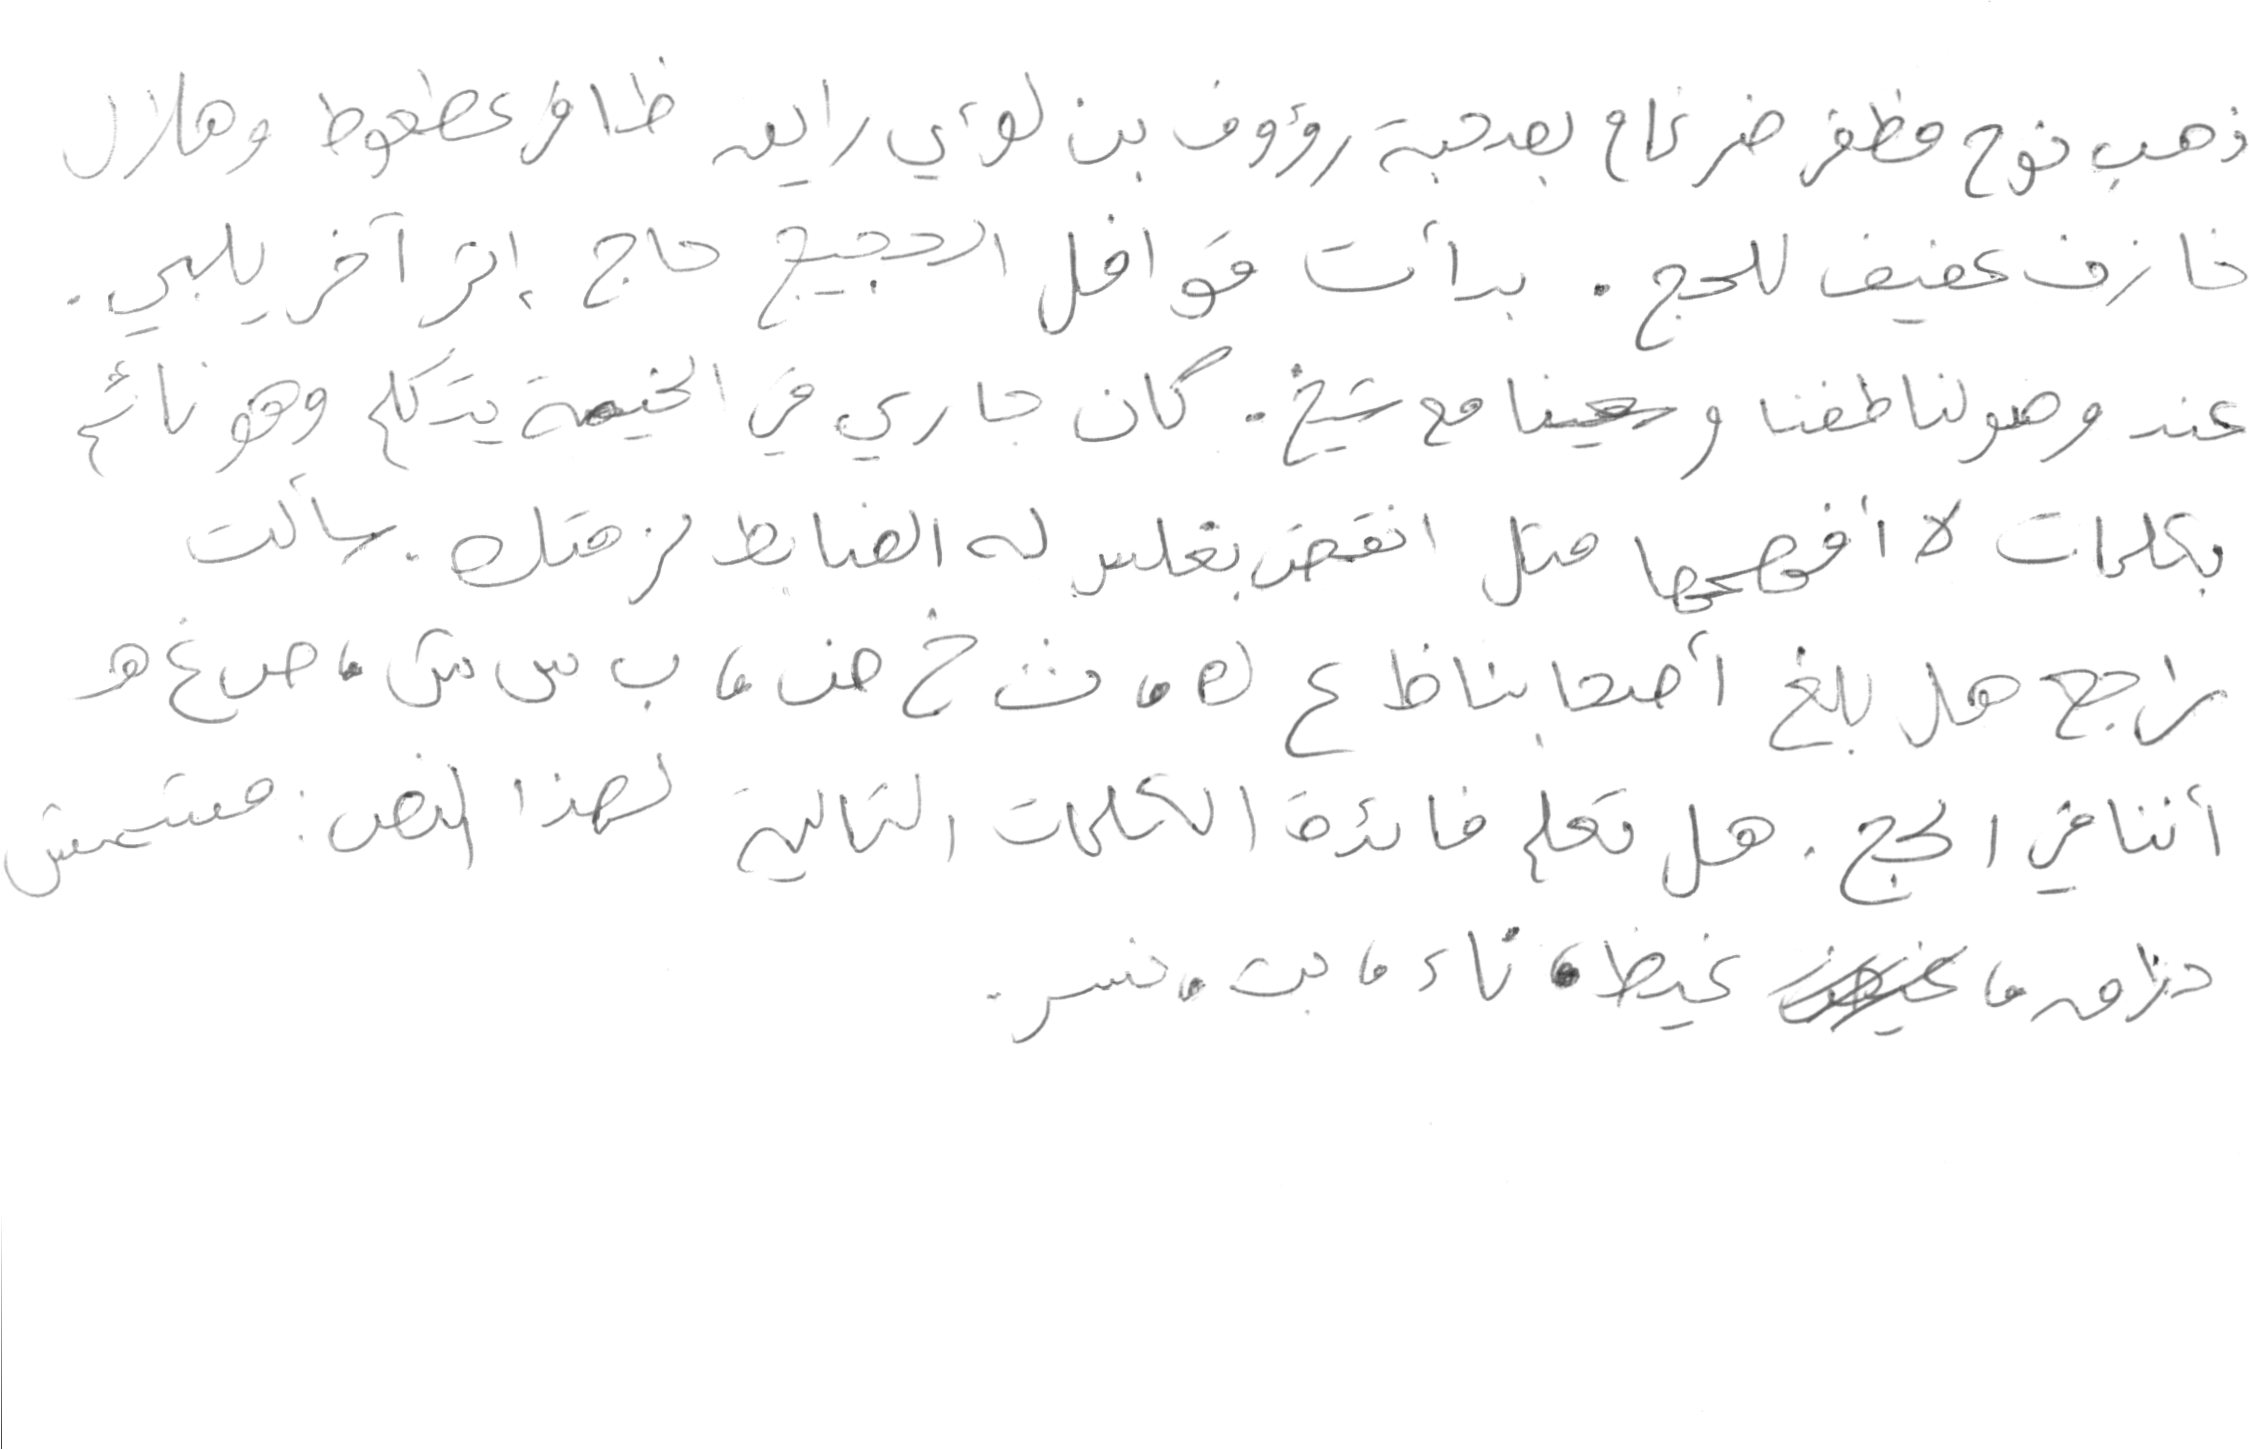 ذهب نوح مظفر ضرغام بصحبة رؤوف بن لؤي رايق ظافر عطعوط وهلال
خازف عفيف للحج . بدأت قوافل الحجيج حاج إثر آخر يلبي .
عند وصولنا طفنا وسعينا مع شيخ . كان جاري في الخيمة يتكلم وهو نائم
بكلمات لا أفهمها مثل انقض بغلس له الضابط نزهتك . سألت
راجح هل بلغ أصحابنا ظ ع ك ، ث خ ض ، ب س ش ، ص غ هـ
أننا في الحج . هل تعلم فائدة الكلمات التالية لهذا النص : مشمش
غيظ ، ثاء ، بت ، نسر .